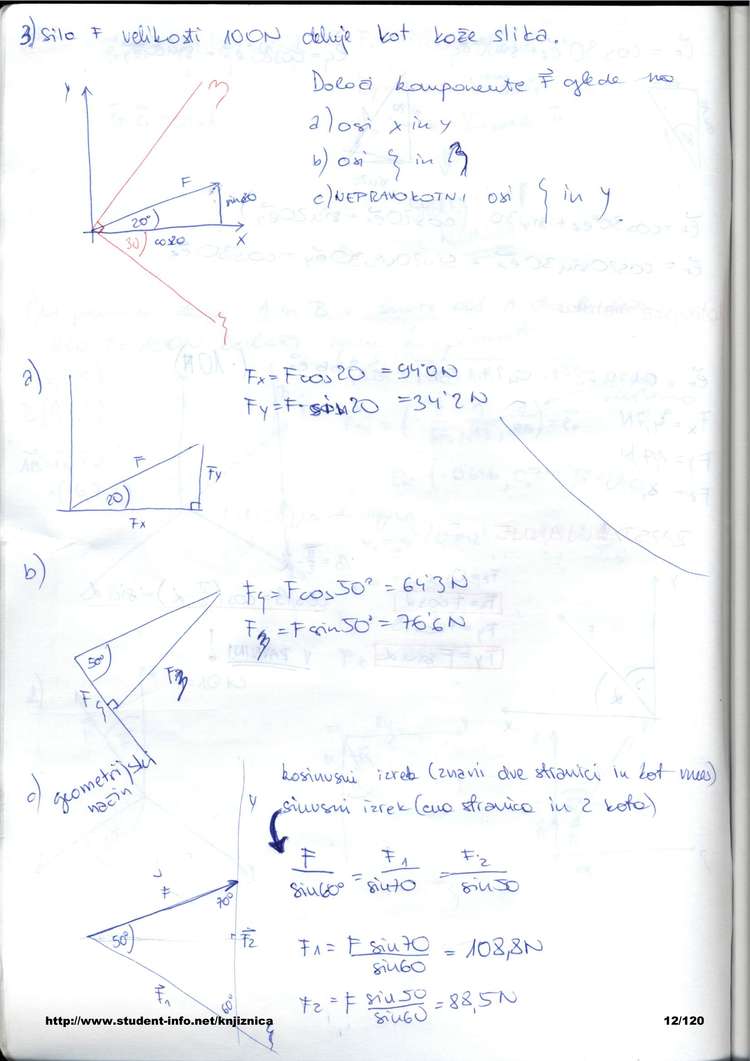 3) Sila F velikosti 100N deluje kot kaže slika.
Določi komponente F⃗ glede na
a) osi x in y
b) osi ξ in η
c) NEPRAVOKOTNI osi ξ in y.
y
η
F
sin20
20°
30)
cos20
x
ξ
a)
Fx = F cos20 = 94'0N
Fy = F · sin20 = 34'2N
F
Fy
20)
Fx
b)
Fξ = F cos50° = 64'3N
Fη = F sin50° = 76'6N
50°
Fη
Fξ
c) geometrijski
način
kosinusni izrek (znani dve stranici in kot vmes)
sinusni izrek (ena stranica in 2 kota)
y
F/sin60° = F1/sin70 = F2/sin50
F⃗
70°
50°
F⃗2
F⃗1
60°
ξ
F1 = F sin70/sin60 = 108,8N
F2 = F sin50/sin60 = 88,5N
http://www.student-info.net/knjiznica
12/120